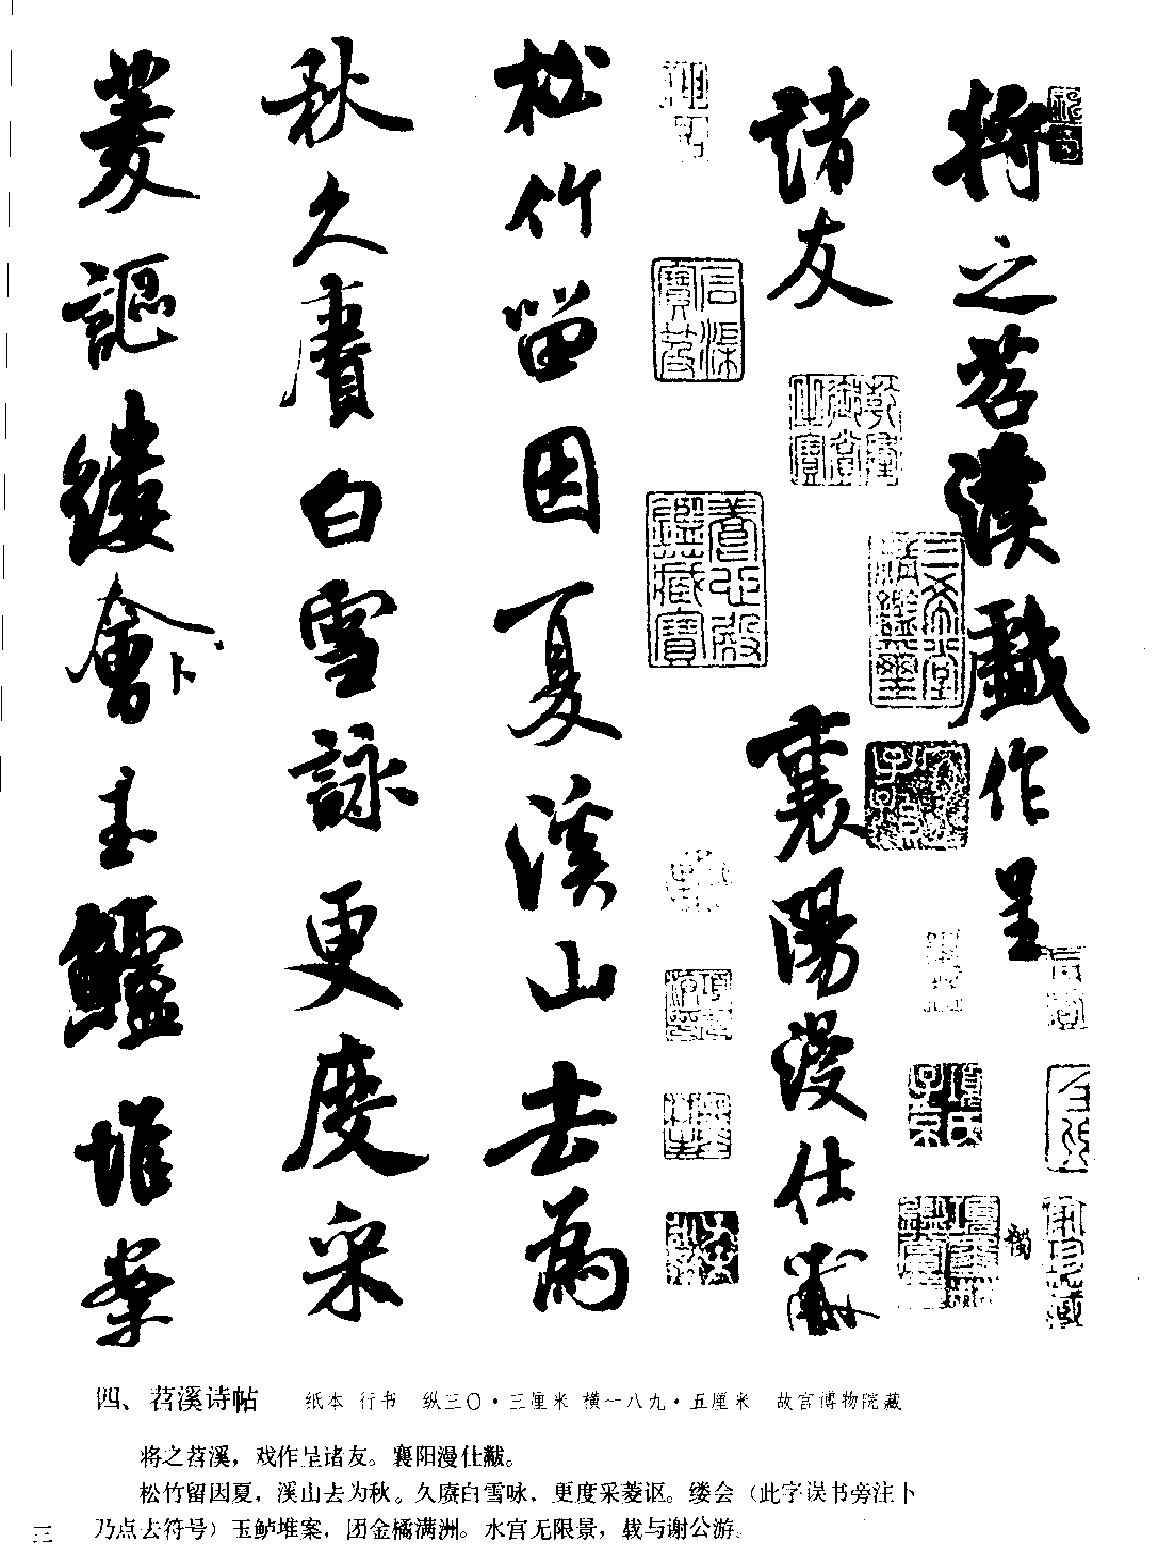 将之苕溪戲作呈
諸友
襄陽漫仕黻
松竹留因夏溪山去為
秋久賡白雪詠更度采
菱謳縷會卜玉鱸堆案
四、苕溪诗帖 纸本 行书 纵三〇·三厘米 横一八九·五厘米 故宫博物院藏
将之苕溪，戏作呈诸友。襄阳漫仕黻。
松竹留因夏，溪山去为秋。久赓白雪咏，更度采菱讴。缕会（此字误书旁注卜
乃点去符号）玉鲈堆案，团金橘满洲。水宫无限景，载与谢公游。